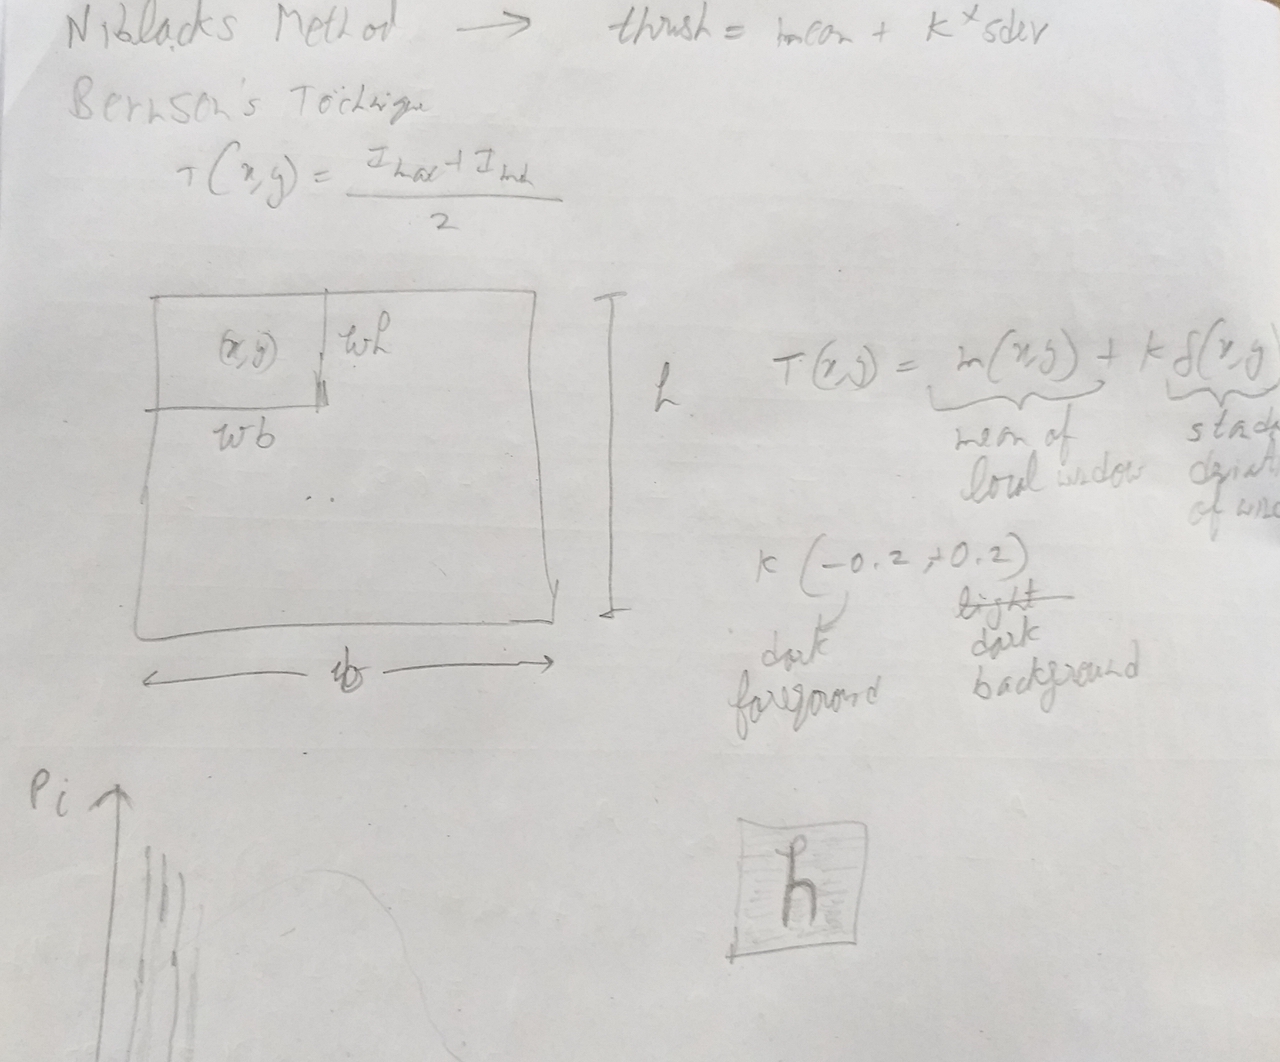 Niblacks Method → thrush = mean + k * sdev
Bernson's Technique
T(x,y) = Imax + Imin / 2
(x,y) wh
wb
h
b
T(x,y) = m(x,y) + k δ(x,y)
mean of
local window
stad
deviat
of wind
k (-0.2, +0.2)
light
dark
foreground
dark
background
Pi
h